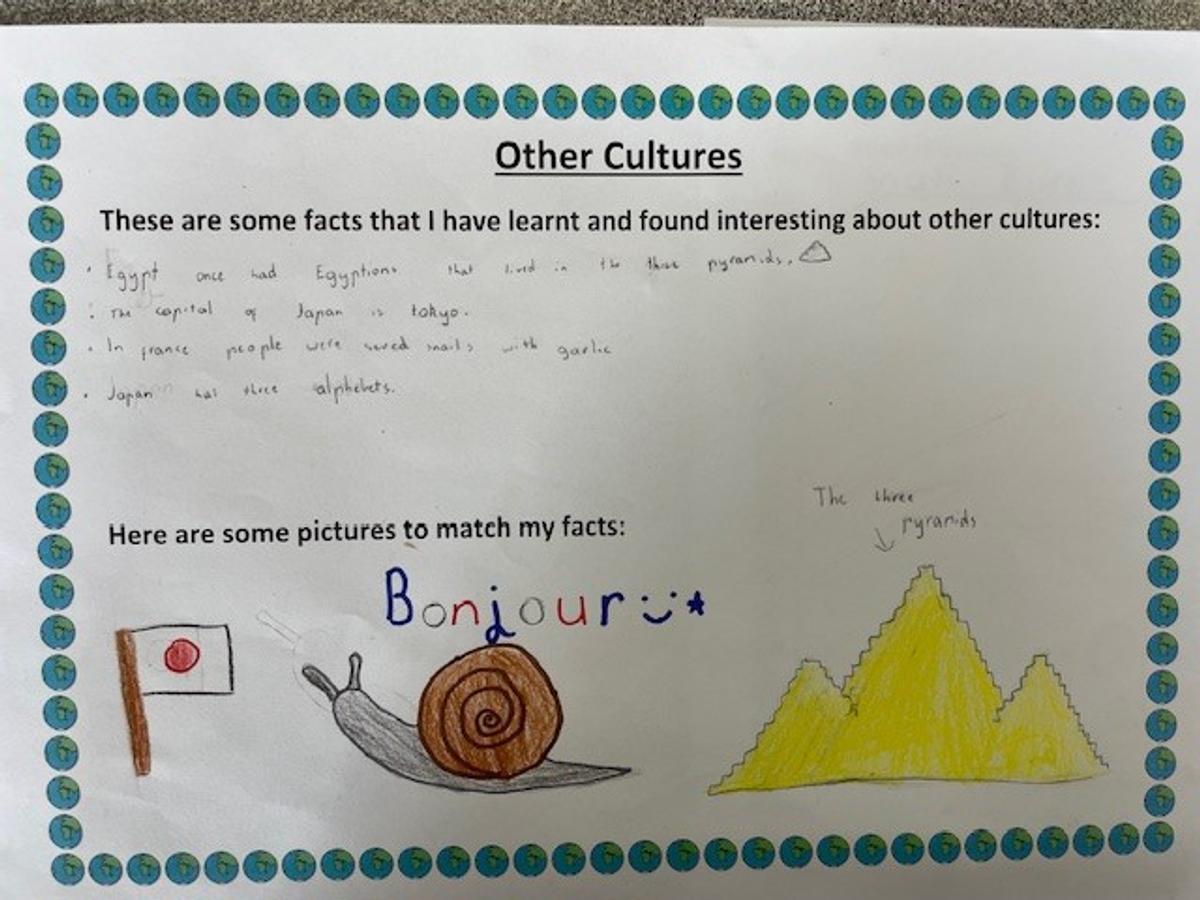 Other Cultures
These are some facts that I have learnt and found interesting about other cultures:
• Egypt once had Egyptions that lived in the three pyramids.
• The capital of Japan is tokyo.
• In france people were saved snails with garlic
• Japan has three alphebets.
Here are some pictures to match my facts:
The three
pyramids
Bonjour